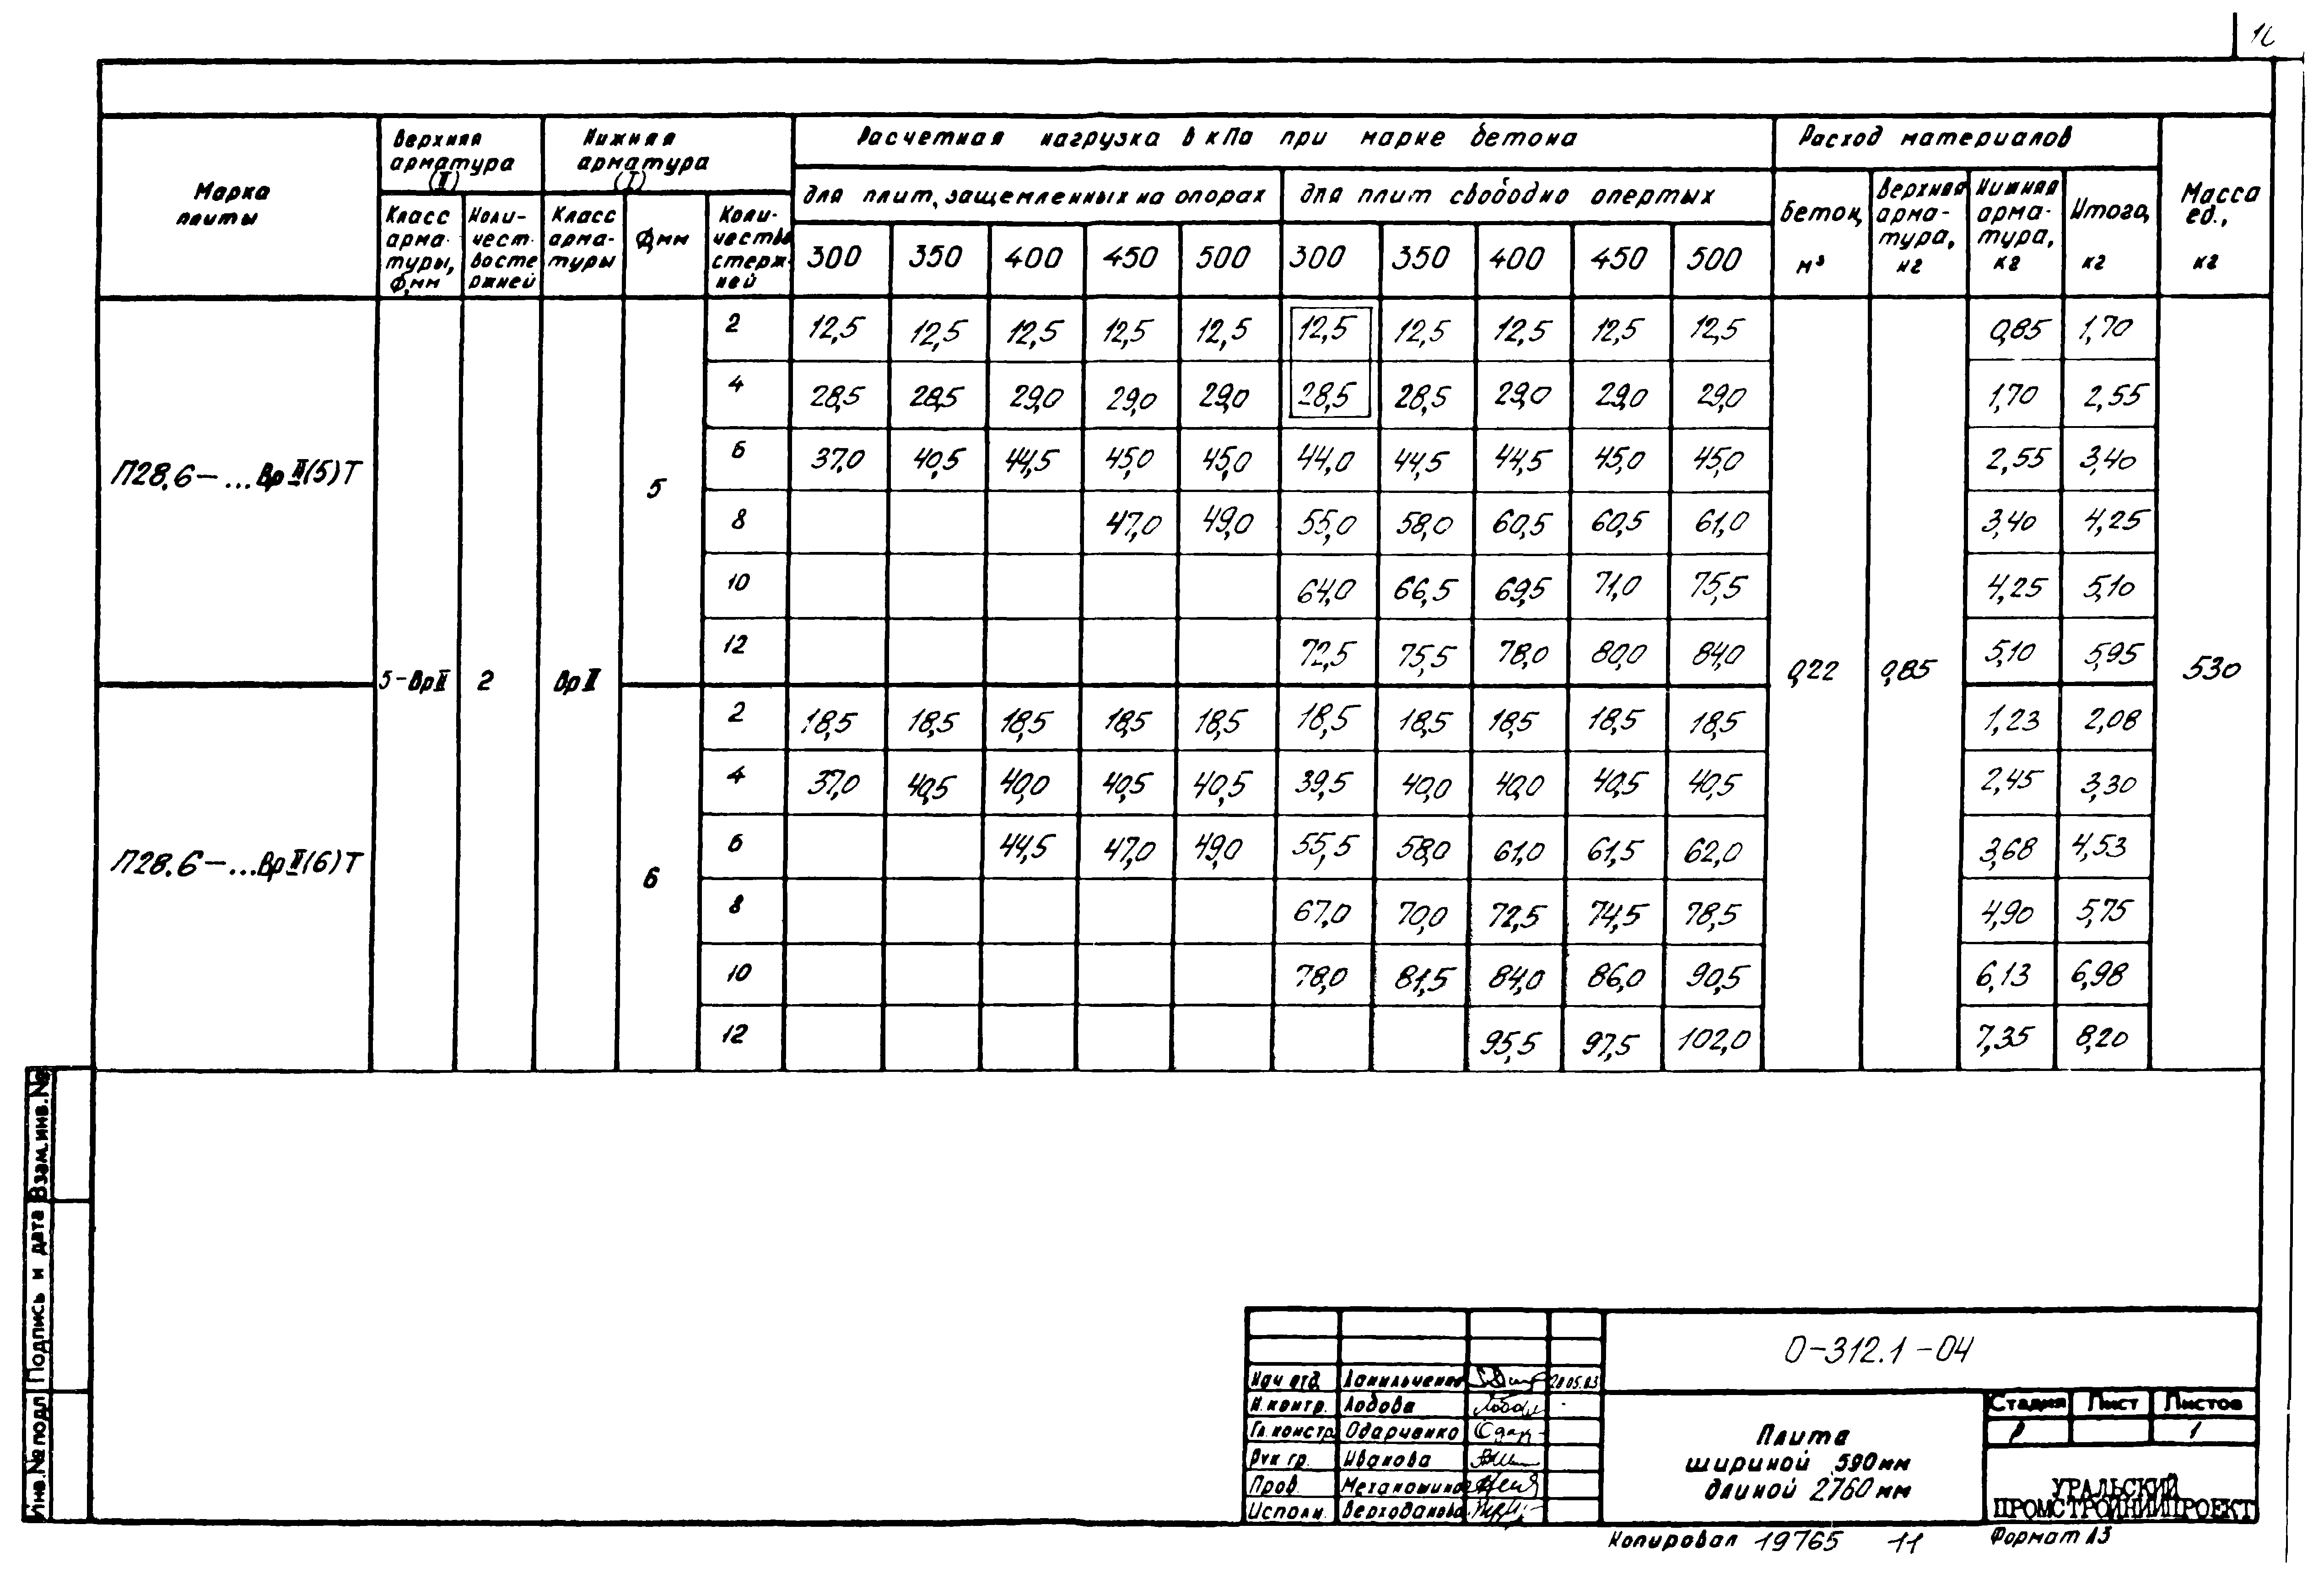 Марка плиты
Верхняя арматура (II)
Нижняя арматура (I)
Расчетная нагрузка в кПа при марке бетона
Расход материалов
Масса ед., кг
Класс арматуры, Ф,мм
Количество стержней
Класс арматуры
Ф,мм
Количество стержней
для плит, защемленных на опорах
для плит свободно опертых
Бетон, м³
Верхняя арматура, кг
Нижняя арматура, кг
Итого, кг
300 350 400 450 500 300 350 400 450 500
2 12,5 12,5 12,5 12,5 12,5 12,5 12,5 12,5 12,5 12,5 0,85 1,70
4 28,5 28,5 29,0 29,0 29,0 28,5 28,5 29,0 29,0 29,0 1,70 2,55
П28.6-...ВрII(5)Т 5
6 37,0 40,5 44,5 45,0 45,0 44,0 44,5 44,5 45,0 45,0 2,55 3,40
8 47,0 49,0 55,0 58,0 60,5 60,5 61,0 3,40 4,25
10 64,0 66,5 69,5 71,0 75,5 4,25 5,10
12 72,5 75,5 78,0 80,0 84,0 5,10 5,95
5-ВрII 2 ВрII 0,22 0,85 530
2 18,5 18,5 18,5 18,5 18,5 18,5 18,5 18,5 18,5 18,5 1,23 2,08
4 37,0 40,5 40,0 40,5 40,5 39,5 40,0 40,0 40,5 40,5 2,45 3,30
П28.6-...ВрII(6)Т 6
6 44,5 47,0 49,0 55,5 58,0 61,0 61,5 62,0 3,68 4,53
8 67,0 70,0 72,5 74,5 78,5 4,90 5,75
10 78,0 81,5 84,0 86,0 90,5 6,13 6,98
12 95,5 97,5 102,0 7,35 8,20
Инв.№подл Подпись и дата Взам.инв.№
О-312.1-04
Нач отд Данильченко 20.05.83
Н.контр. Лобова
Гл.констр Одарченко
Рук гр. Иванова
Пров.
Исполн. Верходанова
Плита
шириной 590мм
длиной 2760мм
Стадия Лист Листов
Р 1
УРАЛЬСКИЙ
ПРОМСТРОЙНИИПРОЕКТ
Копировал 19765 11 Формат А3